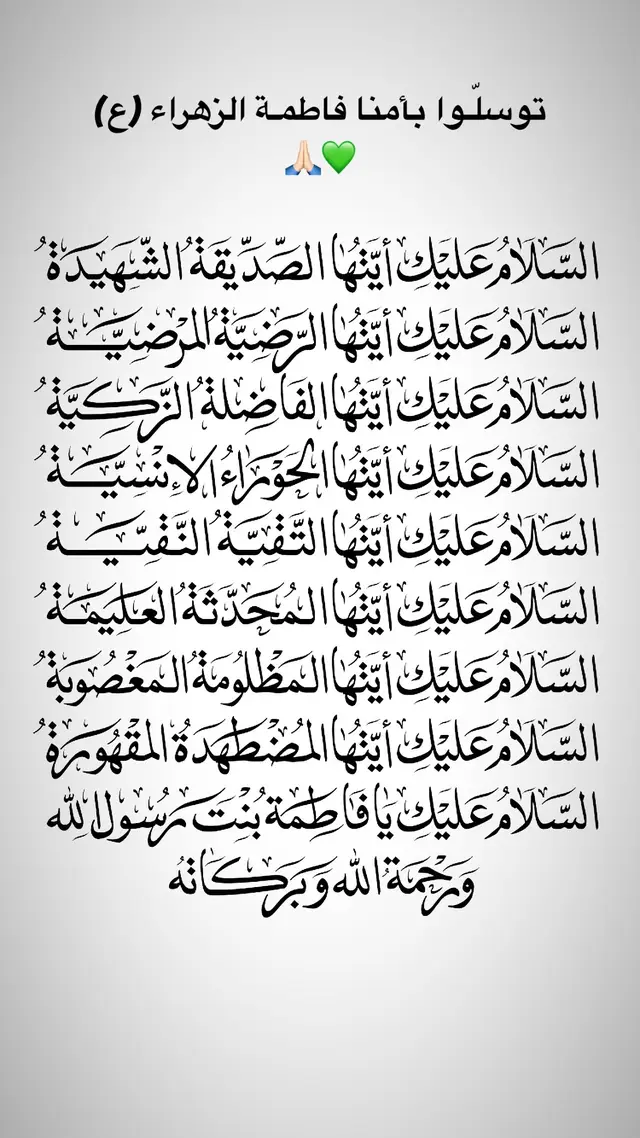 توسلّوا بأمنا فاطمة الزهراء (ع)
🙏🏻💚
السَّلَامُ عَلَيْكِ أَيَّتُهَا الصِّدِّيقَةُ الشَّهِيدَةُ
السَّلَامُ عَلَيْكِ أَيَّتُهَا الرَّضِيَّةُ المَرْضِيَّةُ
السَّلَامُ عَلَيْكِ أَيَّتُهَا الفَاضِلَةُ الزَّكِيَّةُ
السَّلَامُ عَلَيْكِ أَيَّتُهَا الحَوْرَاءُ الإِنْسِيَّةُ
السَّلَامُ عَلَيْكِ أَيَّتُهَا التَّقِيَّةُ النَّقِيَّةُ
السَّلَامُ عَلَيْكِ أَيَّتُهَا المُحَدَّثَةُ العَلِيمَةُ
السَّلَامُ عَلَيْكِ أَيَّتُهَا المَظْلُومَةُ المَغْصُوبَةُ
السَّلَامُ عَلَيْكِ أَيَّتُهَا المُضْطَهَدَةُ المَقْهُورَةُ
السَّلَامُ عَلَيْكِ يَا فَاطِمَة بُنِْتَ رَسُولِ الله
وَرَحْمَةُ الله وَبَرَكَاتهُ